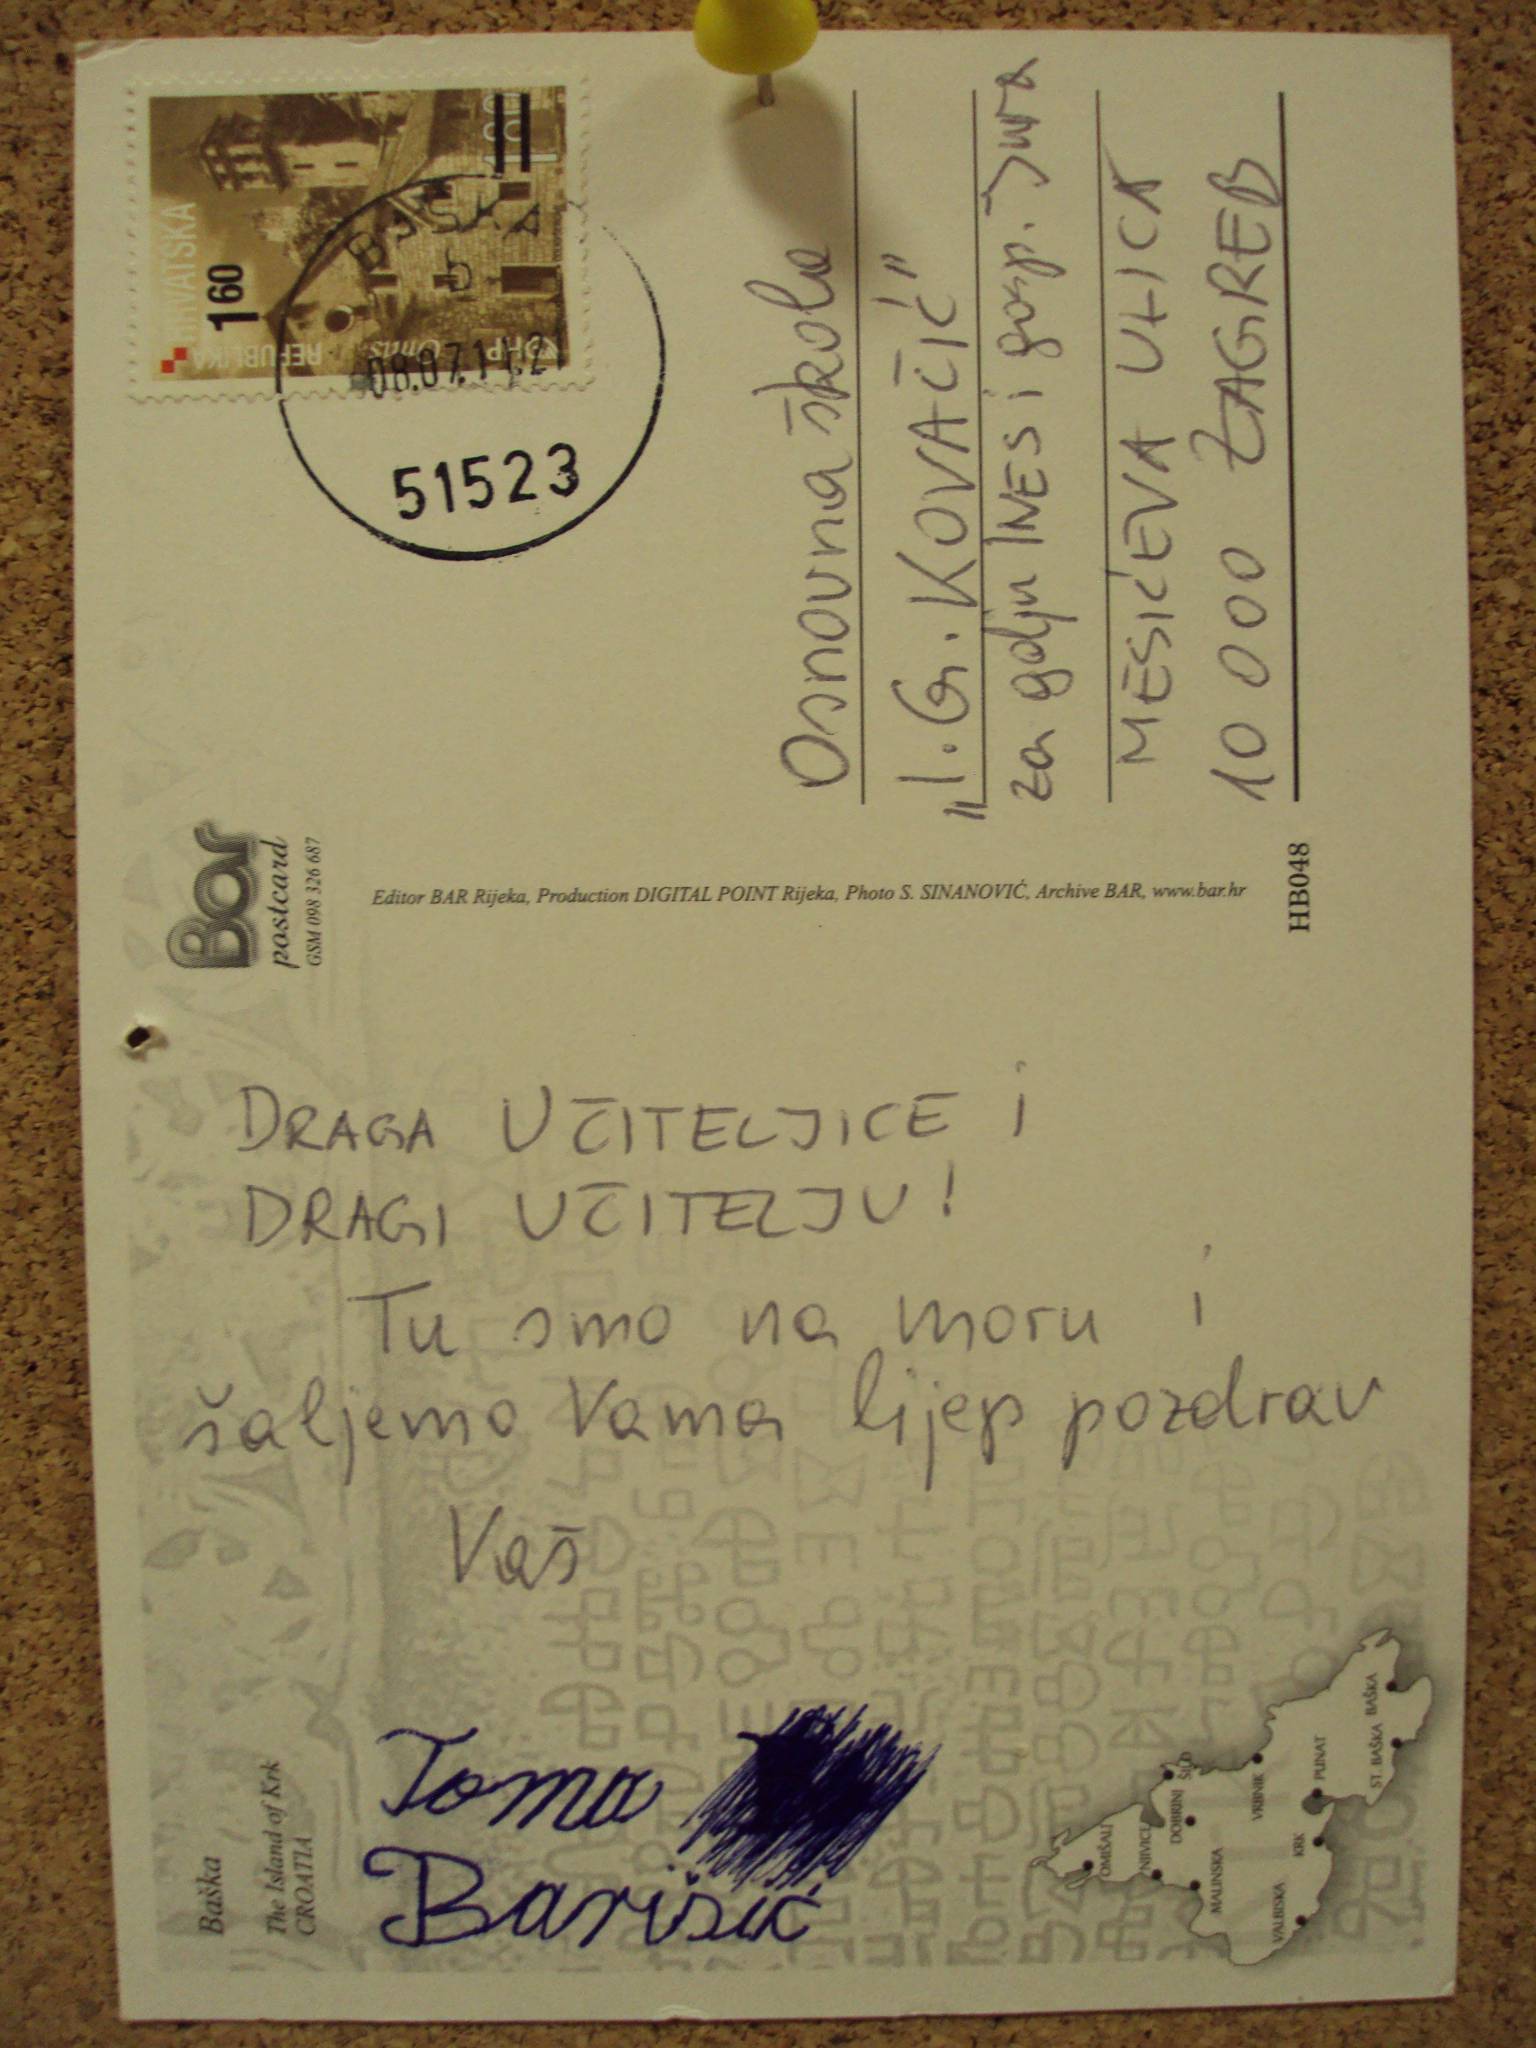 Baška
The Island of Krk
CROATIA
DRAGA UČITELJICE i
DRAGI UČITELJU!
Tu smo na moru i
šaljemo Vama lijep pozdrav
Vaš
Toma
Barišić
OMIŠALJ
NJIVICE
MALINSKA
DOBRINJ
ŠILO
VRBNIK
VALBISKA
KRK
PUNAT
ST. BAŠKA
BAŠKA
Bar
postcard
GSM 098 326 687
Editor BAR Rijeka, Production DIGITAL POINT Rijeka, Photo S. SINANOVIĆ, Archive BAR, www.bar.hr
HB048
REPUBLIKA HRVATSKA
1 60
HP
BAŠKA
b
51523
Osnovna škola
„I.G. KOVAČIĆ"
za gdju INES i gosp. Jura
MESIĆEVA ULICA
10 000 ZAGREB